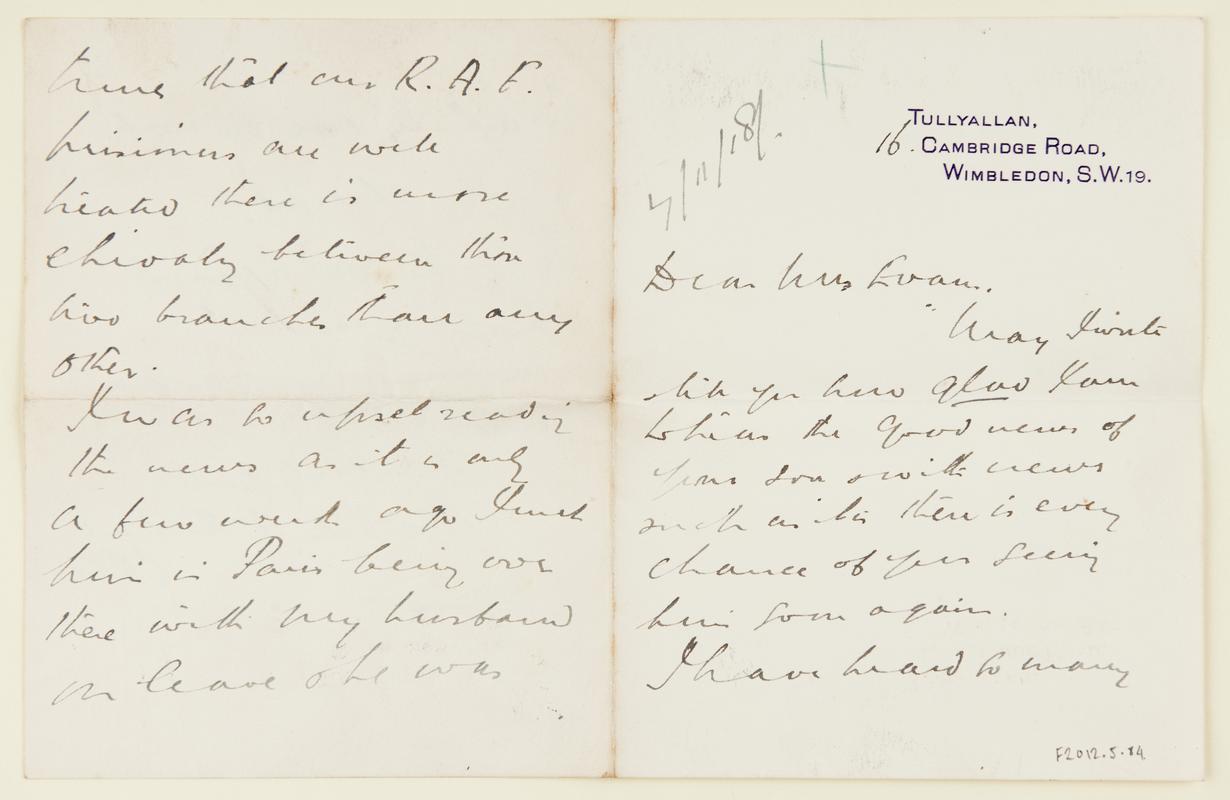 7/11/18/.
TULLYALLAN,
16. CAMBRIDGE ROAD,
WIMBLEDON, S.W.19.
Dear Mrs Evans.
May I write
& tell you how glad I am
to hear the good news of
your son & with news
such as his there is every
chance of your seeing
him soon again.
I have heard so many
F2012.5.84
times that our R. A. F.
prisoners are well
treated there is more
chivalry between these
two branches than any
other.
I was so upset reading
the news as it is only
a few weeks ago I met
him in Paris being over
there with my husband
on leave & he was